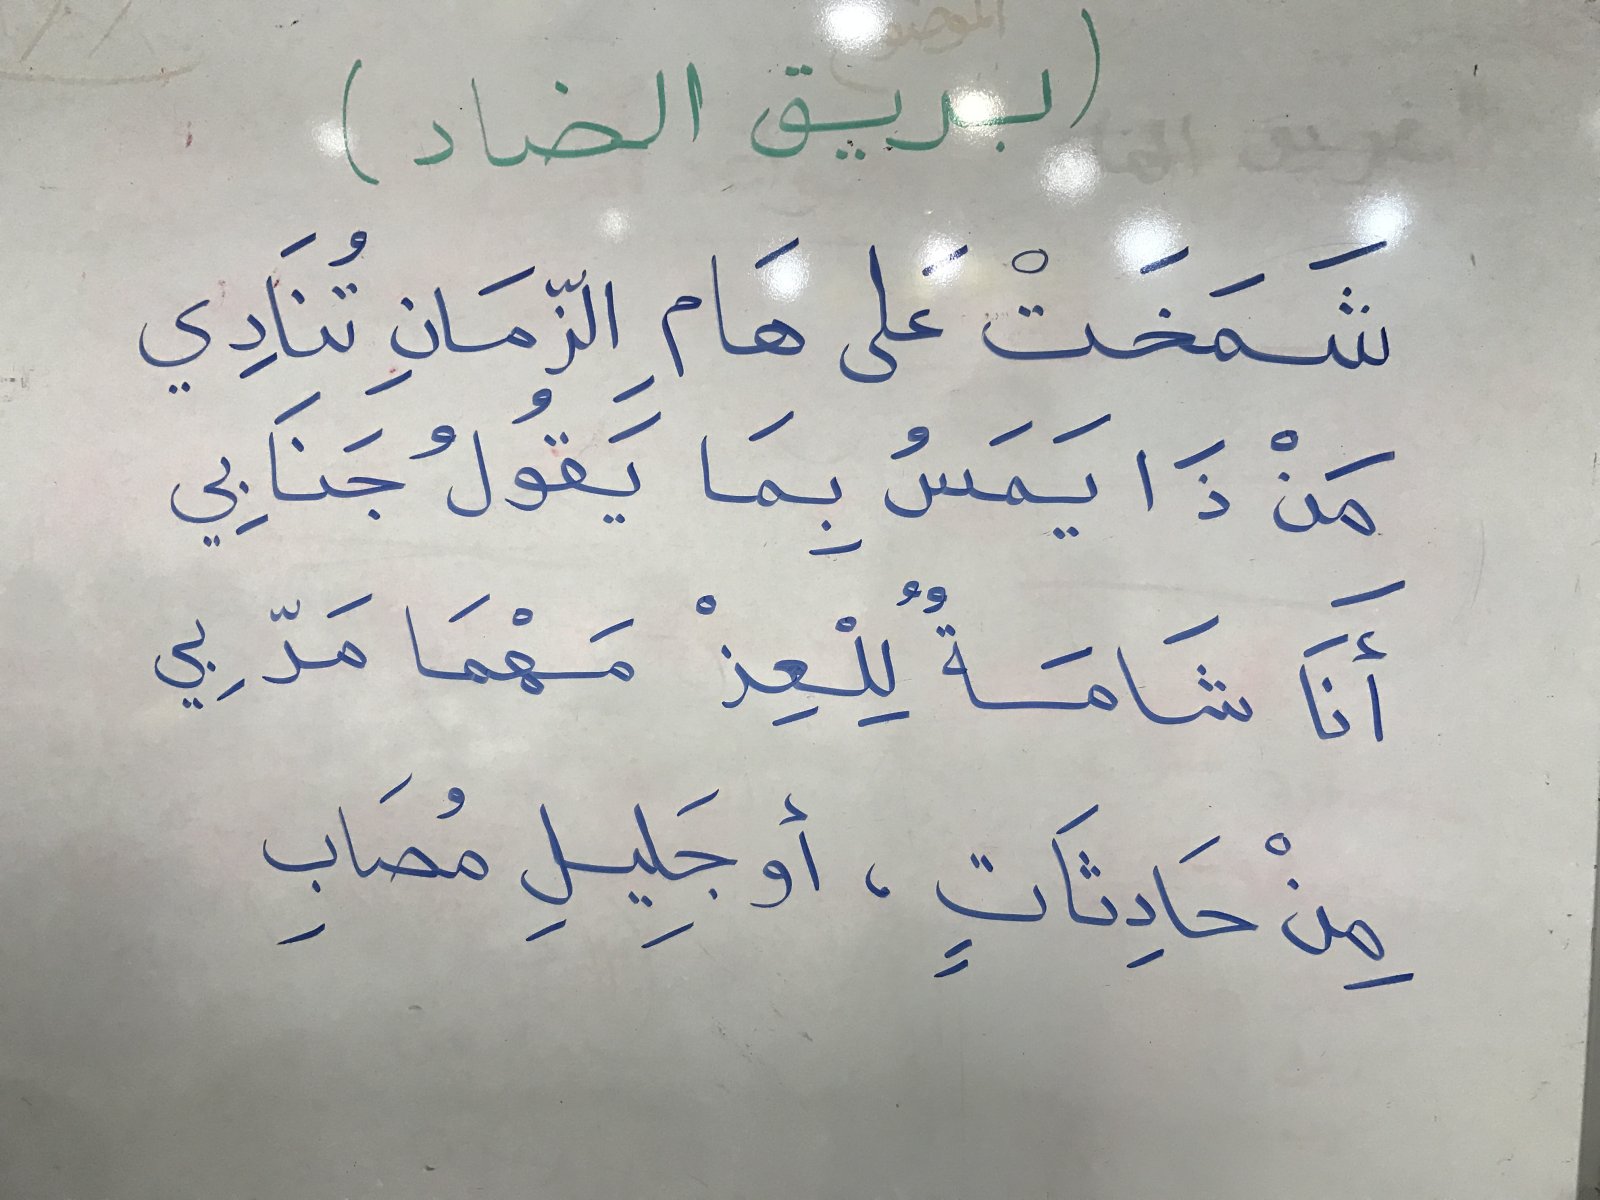 (بريق الضاد)
شَمَخَتْ عَلى هَامِ الزّمَانِ تُنَادِي
مَنْ ذَا يَمَسُ بِمَا يَقُولُ جَنَابِي
أَنَا شَامَةٌ لِلْعِذْ مَهْمَا مَرّ بِي
مِنْ حَادِثَاتٍ ، أو جَلِيلِ مُصَابِ